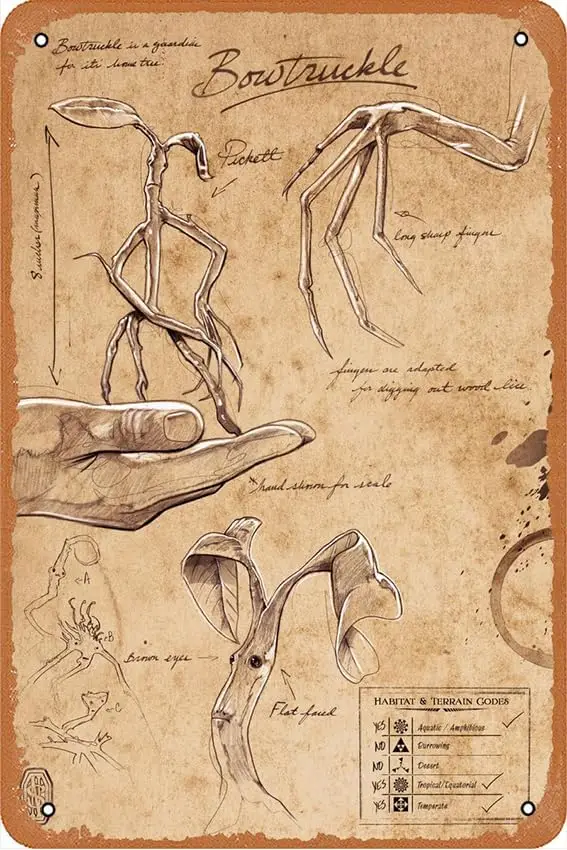 Bowtruckle is a guardian
for its home tree.
Bowtruckle
Pickett
8 inches (maximum)
long sharp fingers
fingers are adapted
for digging out wood lice.
*hand shown for scale
A
B
C
Brown eyes
Flat faced
HABITAT & TERRAIN CODES
YES Aquatic / Amphibious
NO Burrowing
NO Desert
YES Tropical/Equatorial
YES Temperate